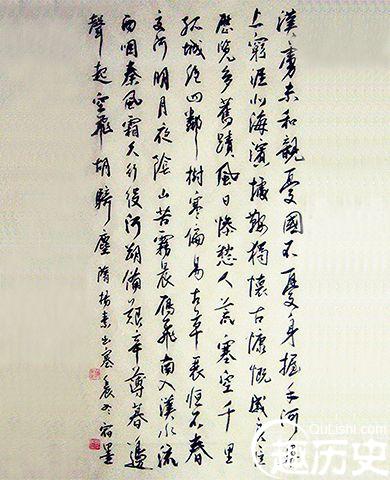 漢虜未和親憂國不憂身握手河梁
上窮涯北海濱據鞍獨懷古慷慨感良臣
歷覽多舊蹟風日慘愁人荒塞空千里
孤城絕四鄰樹寒偏易古草衰恒不春
交河明月夜陰山苦霧晨鴈飛南入漢水流
西咽秦風霜久行役河朔備艱辛薄暮邊
聲起空飛胡騎塵 隋楊素出塞 宿墨
QuLishi.com
趣历史